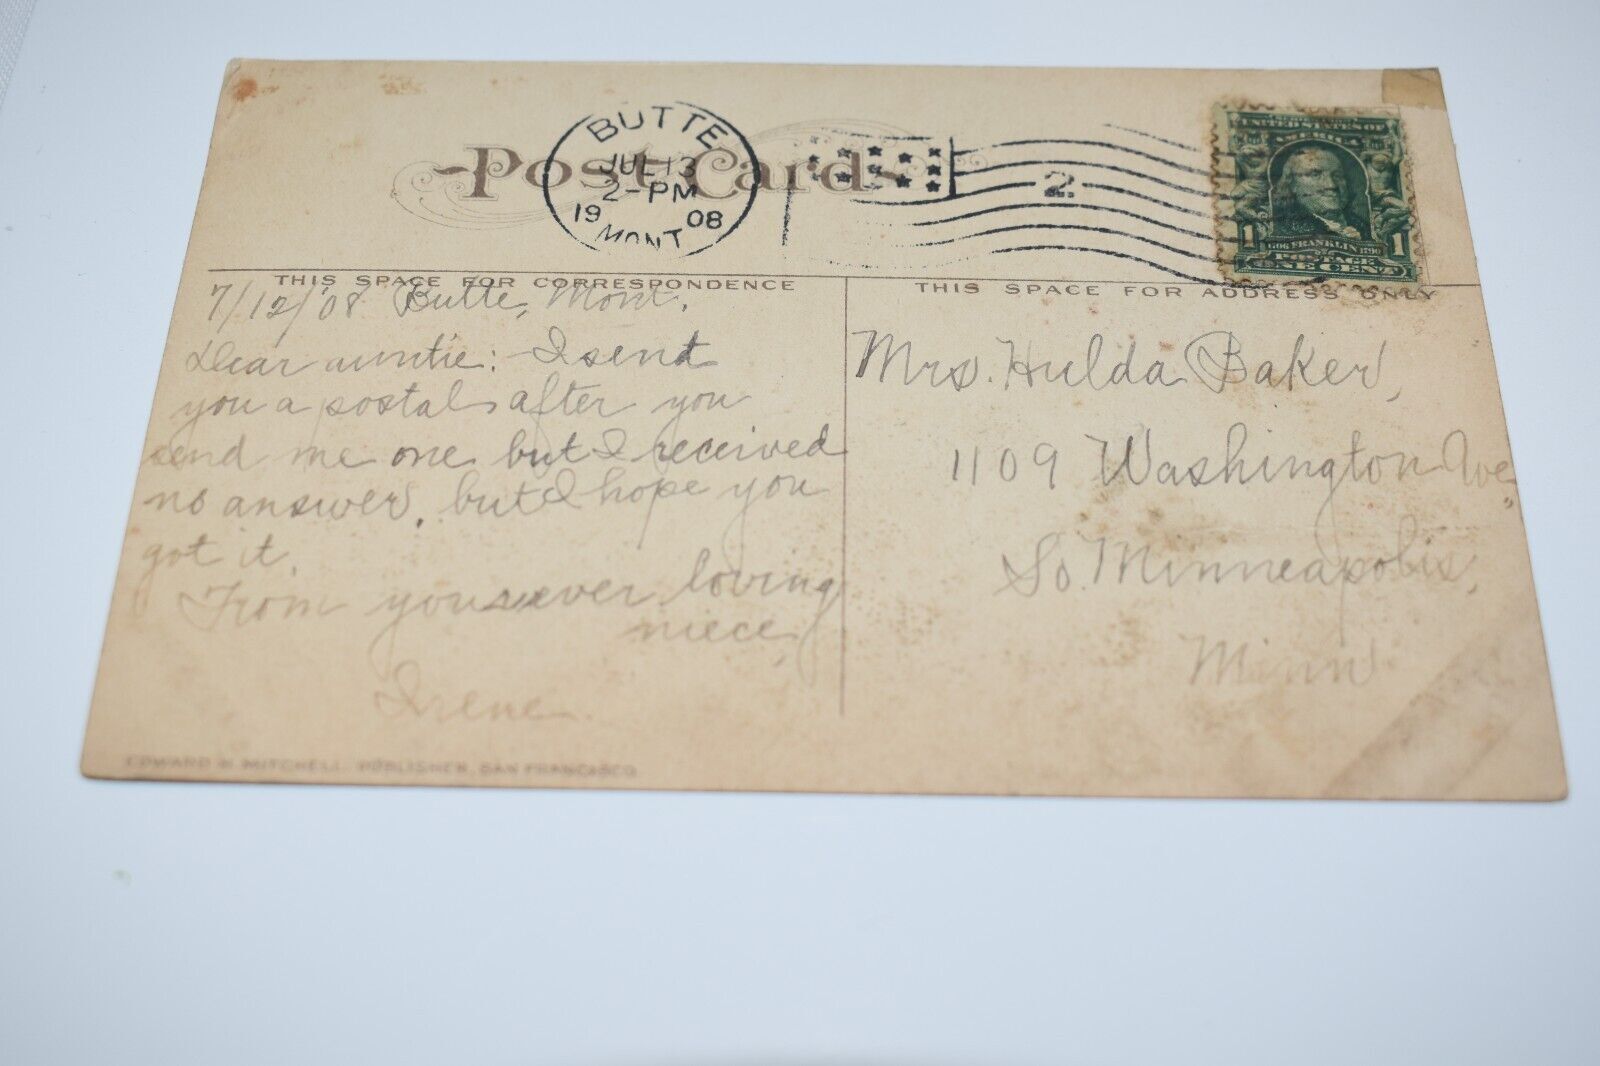 Post Card
BUTTE
JUL 13
2-PM
1908
MONT.
2
UNITED STATES OF
AMERICA
1706 FRANKLIN 1790
1 POSTAGE 1
ONE CENT
THIS SPACE FOR CORRESPONDENCE
7/12/'08 Butte, Mont.
Dear auntie: I send
you a postal after you
send me one but I received
no answer, but I hope you
got it.
From your ever loving
niece,
Irene.
EDWARD H. MITCHELL, PUBLISHER, SAN FRANCISCO
THIS SPACE FOR ADDRESS ONLY
Mrs. Hulda Baker,
1109 Washington Ave.,
So. Minneapolis,
Minn.